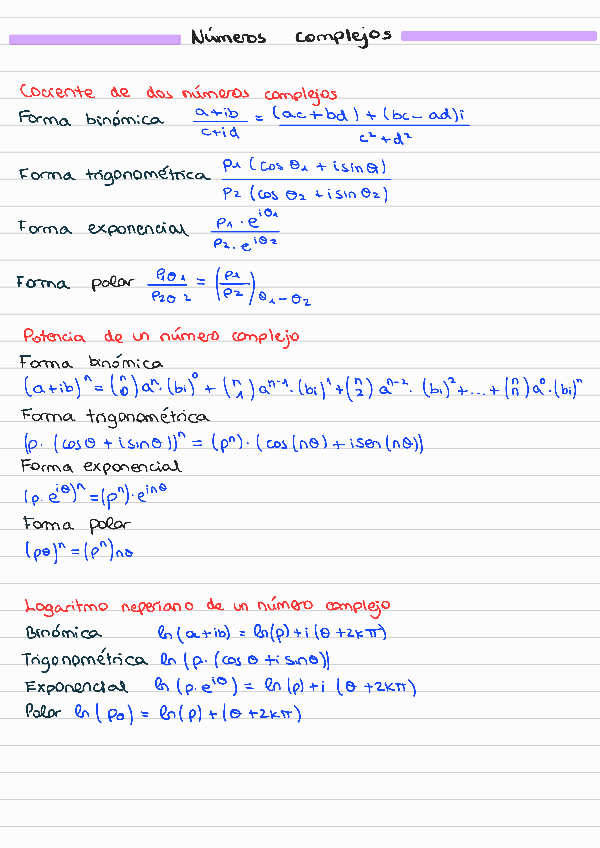 Números complejos
Cociente de dos números complejos
Forma binómica (a+ib)/(c+id) = ((ac+bd)+(bc-ad)i)/(c²+d²)
Forma trigonométrica (ρ₁(cos θ₁ + i sin θ))/(ρ₂(cos θ₂ + i sin θ₂))
Forma exponencial (ρ₁·e^(iθ₁))/(ρ₂·e^(iθ₂))
Forma polar ρ₁θ₁/ρ₂θ₂ = (ρ₁/ρ₂)θ₁-θ₂
Potencia de un número complejo
Forma binómica
(a+ib)ⁿ = (n 0)aⁿ·(bi)⁰ + (n 1)aⁿ⁻¹·(bi)¹+(n 2)aⁿ⁻²·(bi)²+...+(n n)a⁰·(bi)ⁿ
Forma trigonométrica
(ρ·(cos θ + i sin θ))ⁿ = (ρⁿ)·(cos(nθ)+i sen(nθ))
Forma exponencial
(ρ·e^(iθ))ⁿ=(ρⁿ)·e^(inθ)
Forma polar
(ρθ)ⁿ=(ρⁿ)nθ
Logaritmo neperiano de un número complejo
Binómica ln(a+ib) = ln(ρ)+i(θ+2kπ)
Trigonométrica ln(ρ·(cos θ + i sin θ))
Exponencial ln(ρ·e^(iθ)) = ln(ρ)+i (θ+2kπ)
Polar ln(ρθ) = ln(ρ)+(θ+2kπ)